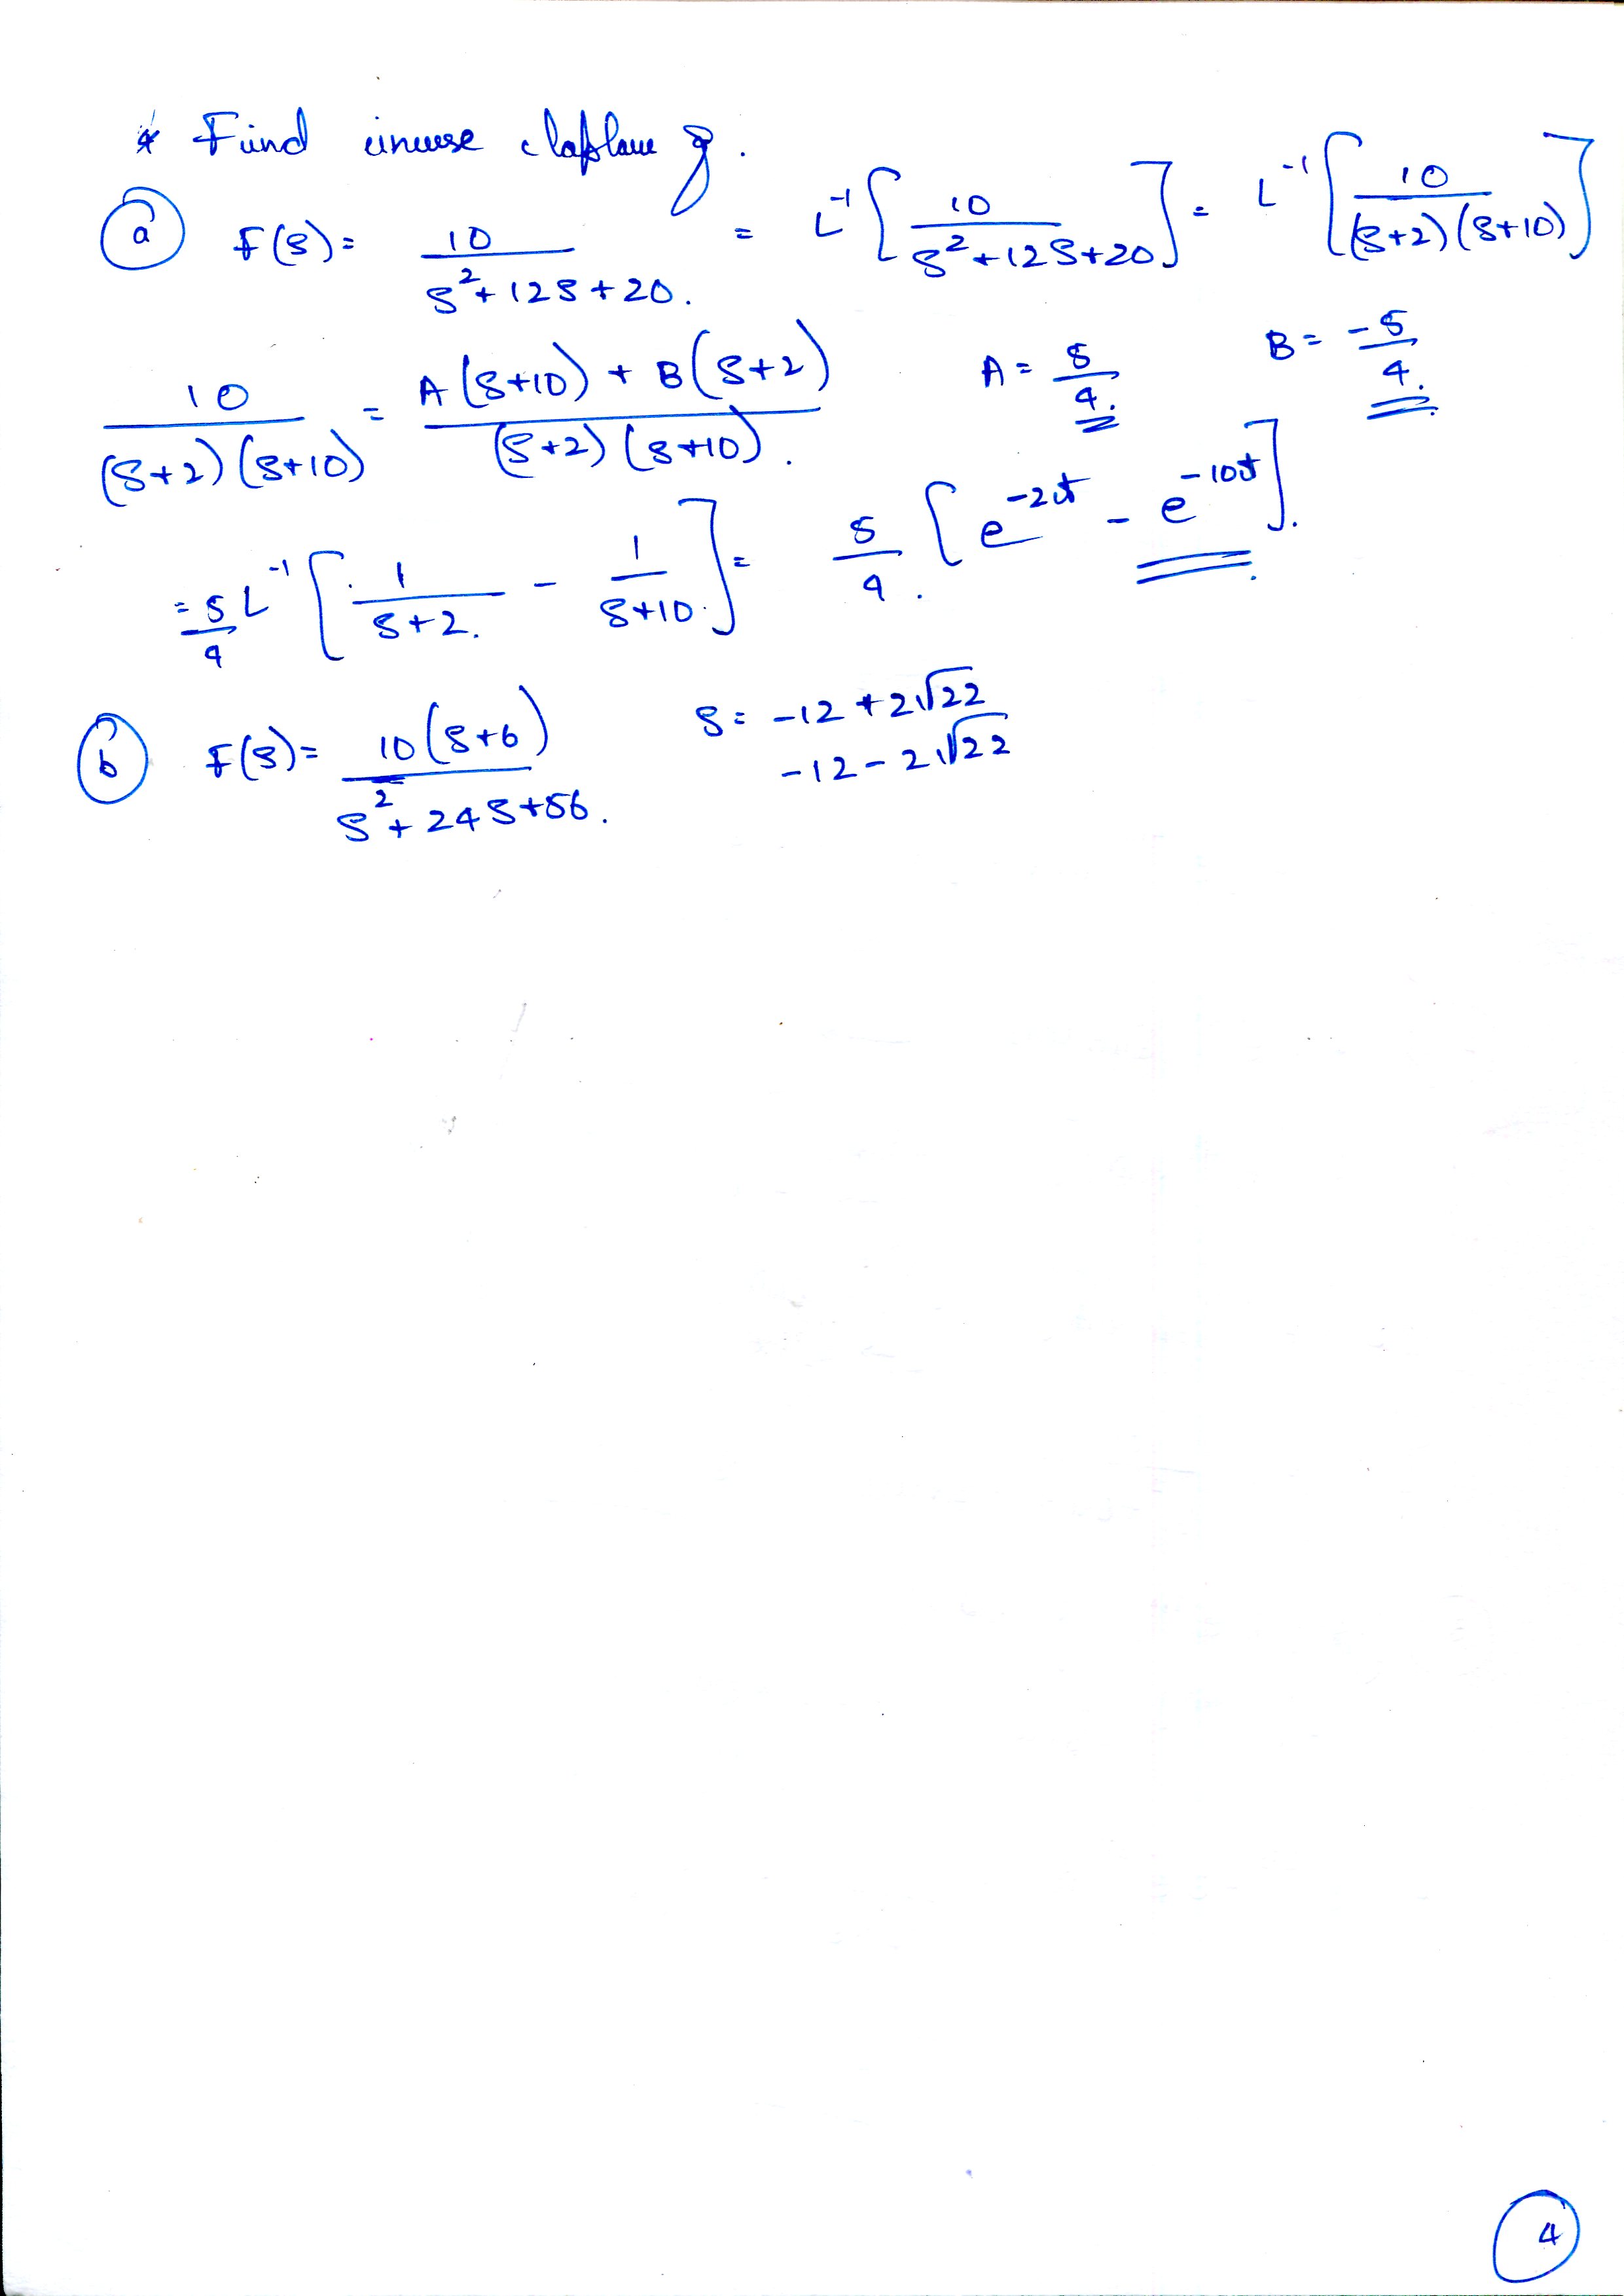 * Find inverse Laplace of.
(a) F(s) = 10 / s² + 12s + 20. = L⁻¹ [ 10 / s² + 12s + 20 ] = L⁻¹ [ 10 / (s+2)(s+10) ]
10 / (s+2)(s+10) = A(s+10) + B(s+2) / (s+2)(s+10). A = 5/4. B = -5/4.
= 5/4 L⁻¹ [ 1 / s+2. - 1 / s+10. ] = 5/4. [ e^-2t - e^-10t ].
(b) F(s) = 10(s+6) / s² + 24s + 56. s = -12 + 2√22
-12 - 2√22
4